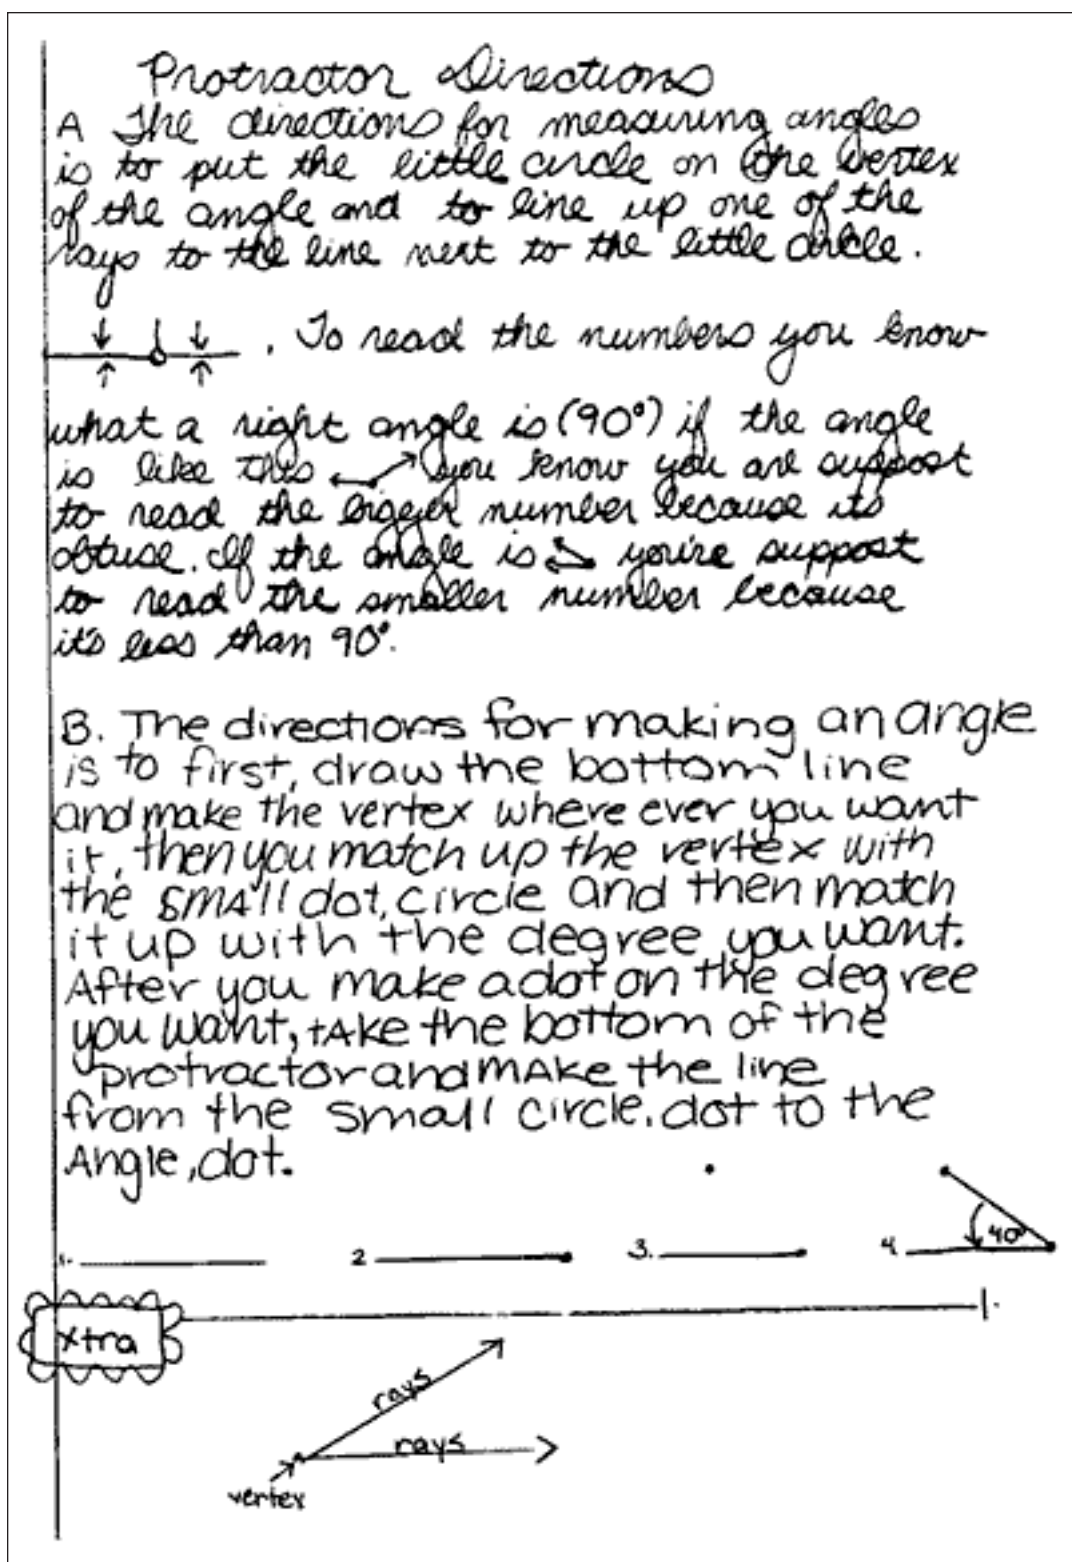 Protractor Directions
A The directions for measuring angles
is to put the little circle on the vertex
of the angle and to line up one of the
rays to the line next to the little circle.
. To read the numbers you know
what a right angle is (90°) if the angle
is like this you know you are suppost
to read the bigger number because its
obtuse. If the angle is you're suppost
to read the smaller number because
it's less than 90°.
B. The directions for making an angle
is to first, draw the bottom line
and make the vertex where ever you want
it, then you match up the vertex with
the small dot, circle and then match
it up with the degree you want.
After you make a dot on the degree
you want, take the bottom of the
protractor and make the line
from the small circle, dot to the
Angle, dot.
1. 2 3. 4. 40°
xtra
rays
rays
vertex